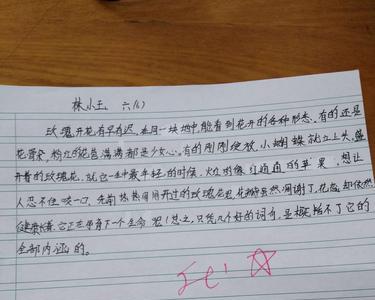 林小玉 六(6)
玫瑰开花有早有迟,在同一块地中,能看到花开的各种形态,有的还是
花骨朵,粉红的花苞满满都是少女心。有的刚刚绽放,小蝴蝶就立上头,盛
开着的玫瑰花,就它一生中最年轻的时候,火红的像红通通的苹果,想让
人忍不住咬一口,先前热热闹闹开过的玫瑰花呢,花瓣虽然凋谢了,花蕊却依然
健康成长,它正在孕育下一个生命呢!总之,只凭几个好的词句,是概括不了它的
全部内涵的。